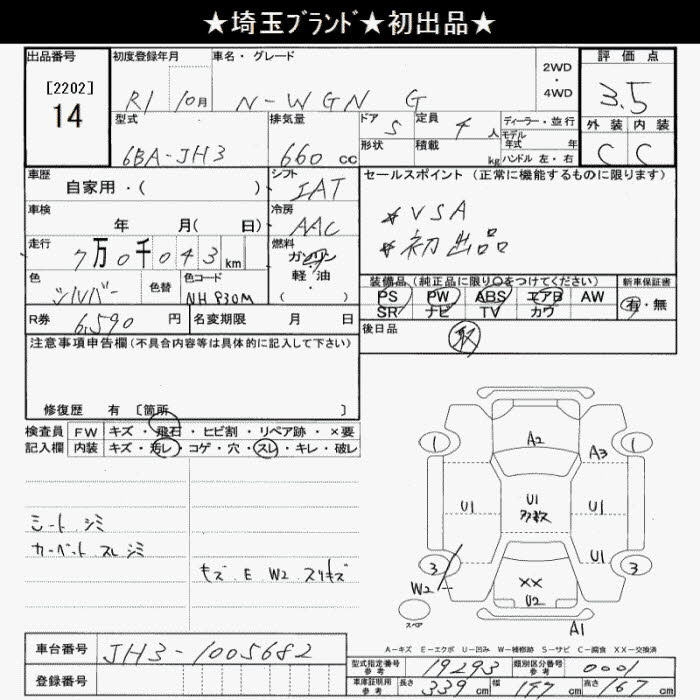 ★埼玉ﾌﾞﾗﾝﾄﾞ★初出品★
出品番号
[2202]
14
初度登録年月
R1 10月
車名・グレード
N-WGN G
2WD
・
4WD
評価点
3.5
外装 内装
C C
型式
6BA-JH3
排気量
660 cc
ドア 5
定員 4 人
形状
積載 kg
ディーラー・並行
モデル
年式 年
ハンドル 左・右
車歴
自家用・( )
シフト
IAT
車検
年 月( 日)
冷房
AAC
走行
7万0千043km
燃料
ガソリン
軽・油
・
( )
色
シルバー
色替
色コード
NH830M
R券 6,590 円
名変期限 月 日
セールスポイント (正常に機能するものに限ります)
★VSA
★初出品
装備品 (純正品に限り○をつけてください)
新車保証書
PS PW ABS エアB AW
有・無
SR ナビ TV カワ
後日品
取
注意事項申告欄(不具合内容等は具体的に記入して下さい)
修復歴 有 〔箇所 〕
検査員
記入欄
FW キズ・飛石・ヒビ割・リペア跡・×要
内装 キズ・汚レ・コゲ・穴・スレ・キレ・破レ
シートシミ
カーペット スレ シミ
キズ E W2 スリキズ
1
A2
A3
1
U1
U1
多数
U1
U1
3
W2
××
U2
3
スペア
A1
A-キズ E-エクボ U-凹み W-補修跡 S-サビ C-腐食 XX-交換済
車台番号
JH3-1005682
登録番号
型式指定番号
参考
19293
類別区分番号
参考
0001
車庫証明用
参考
長さ 339 cm
幅 147 cm
高さ 167 cm